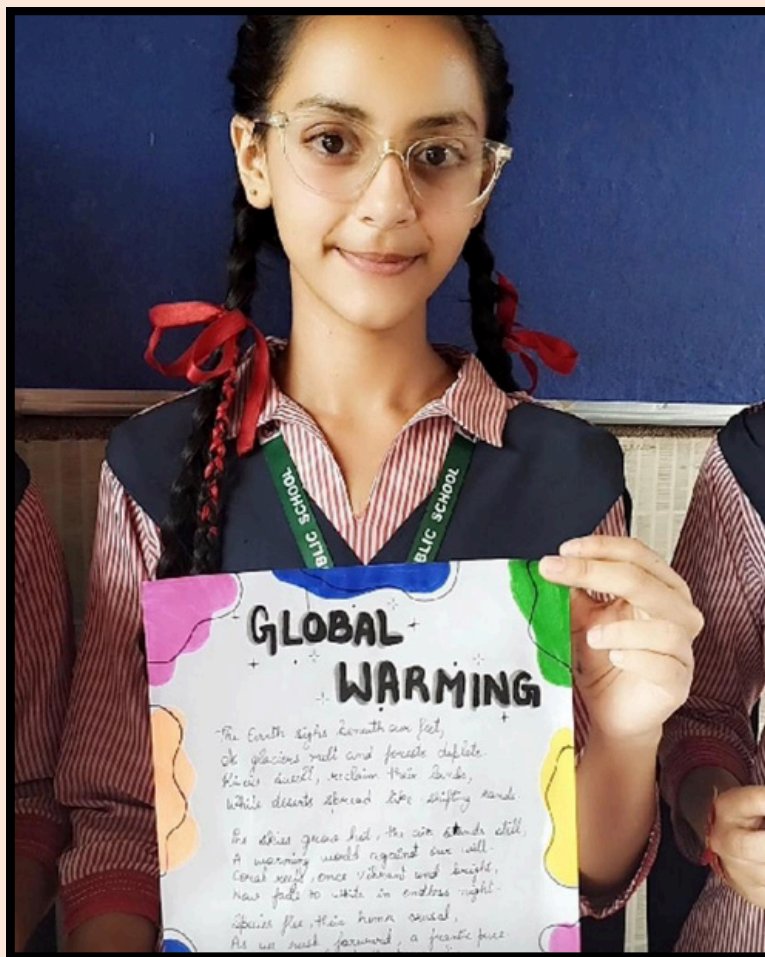 BLIC SCHOOL
BLIC SCHOOL
GLOBAL
WARMING
The Earth sighs beneath our feet,
As glaciers melt and forests deplete.
Rivers swell, reclaim their lands,
While deserts spread like shifting sands.
The skies grow hot, the air stands still,
A warming world against our will.
Coral reefs, once vibrant and bright,
Now fade to white in endless night.
Species flee, their homes
As we rush forward, a frantic pace.